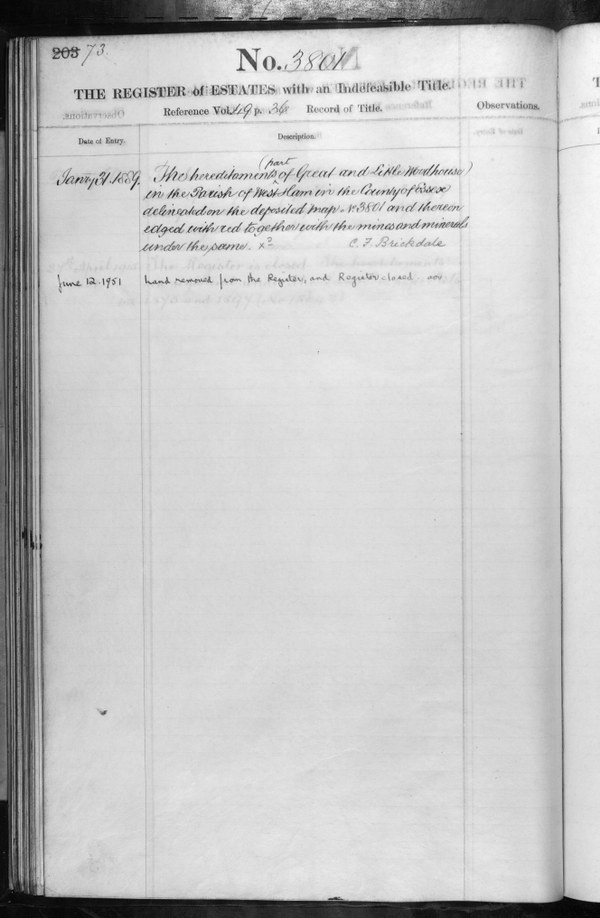 203 73.
No. 3801
THE REGISTER of ESTATES with an Indefeasible Title.
Reference Vol. 49 p. 36 Record of Title. Observations.
Date of Entry. Description.
Jany 31. 1889. The hereditaments (part of Great and Little Woodhouse)
in the Parish of West Ham in the County of Essex
delineated on the deposited map No 3801 and thereon
edged with red together with the mines and minerals
under the same. C. F. Brickdale
June 12. 1951 Land removed from the Register, and Register closed